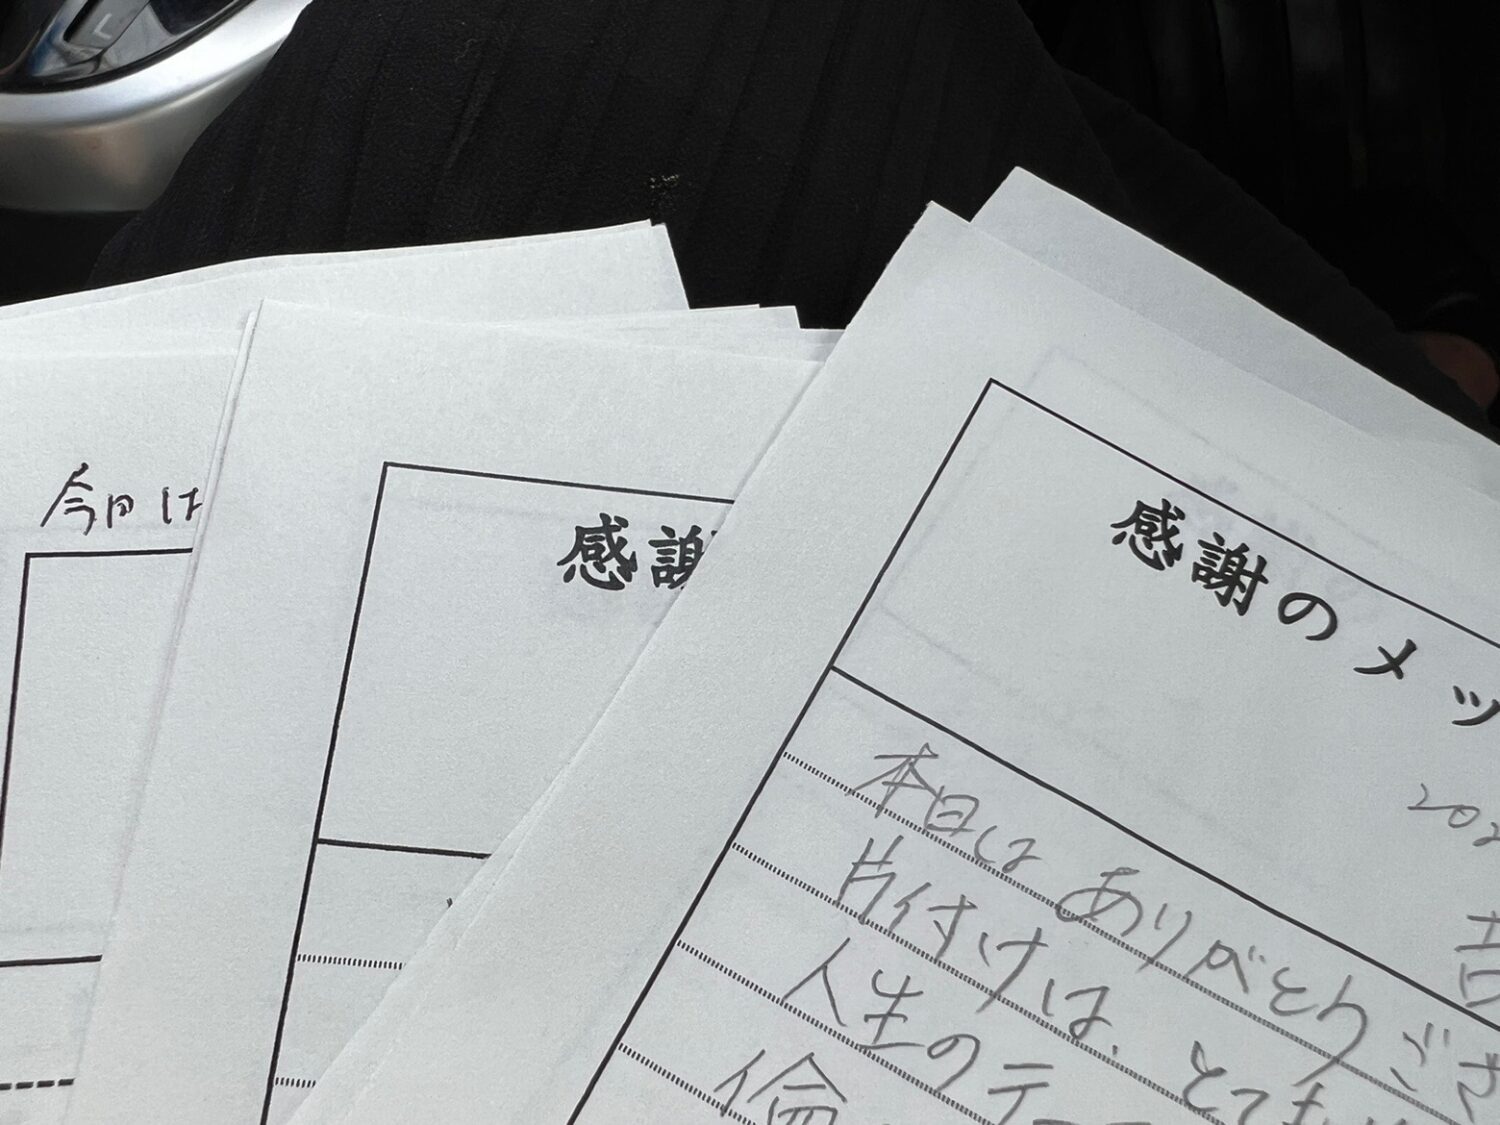 今日は
感謝
感謝のメッ
202
吉
本日は ありがとうござ
片付けは、とても
人生のテー
倫